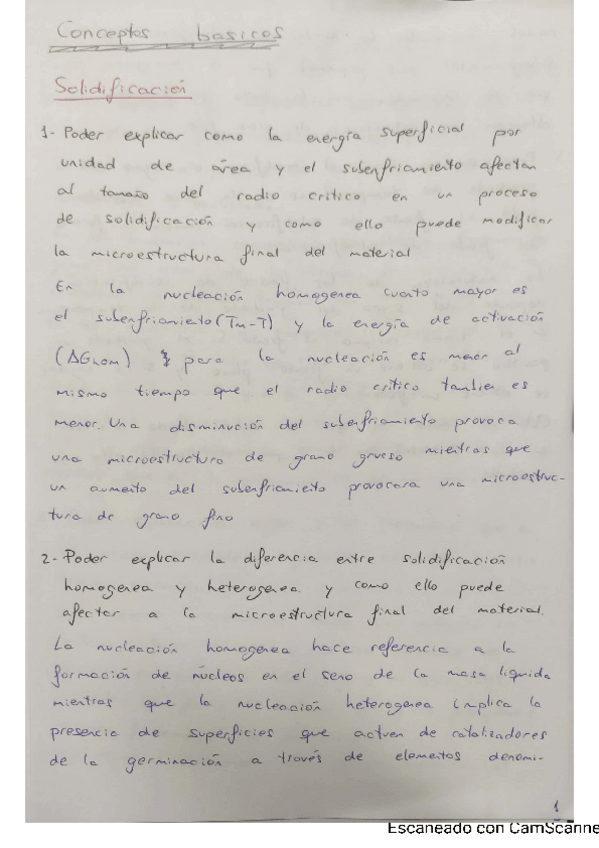 Conceptos basicos
Solidificación
1- Poder explicar como la energía superficial por
unidad de área y el subenfriamiento afectan
al tamaño del radio critico en un proceso
de solidificación y como ello puede modificar
la microestructura final del material
En la nucleación homogenea cuanto mayor es
el subenfriamieto (Tm-T) y la energía de activación
(ΔGhom) para la nucleación es menor al
mismo tiempo que el radio critico tambien es
menor. Una disminución del subenfriamiento provoca
una microestructura de grano grueso mientras que
un aumento del subenfriamiento provocara una microestruc-
tura de grano fino
2- Poder explicar la diferencia entre solidificación
homogenea y heterogenea y como ello puede
afectar a la microestructura final del material.
La nucleación homogenea hace referencia a la
formación de núcleos en el seno de la masa liquida
mientras que la nucleación heterogenea implica la
presencia de superficies que actuen de catalizadores
de la germinación a través de elementos denomi-
1
Escaneado con CamScanne